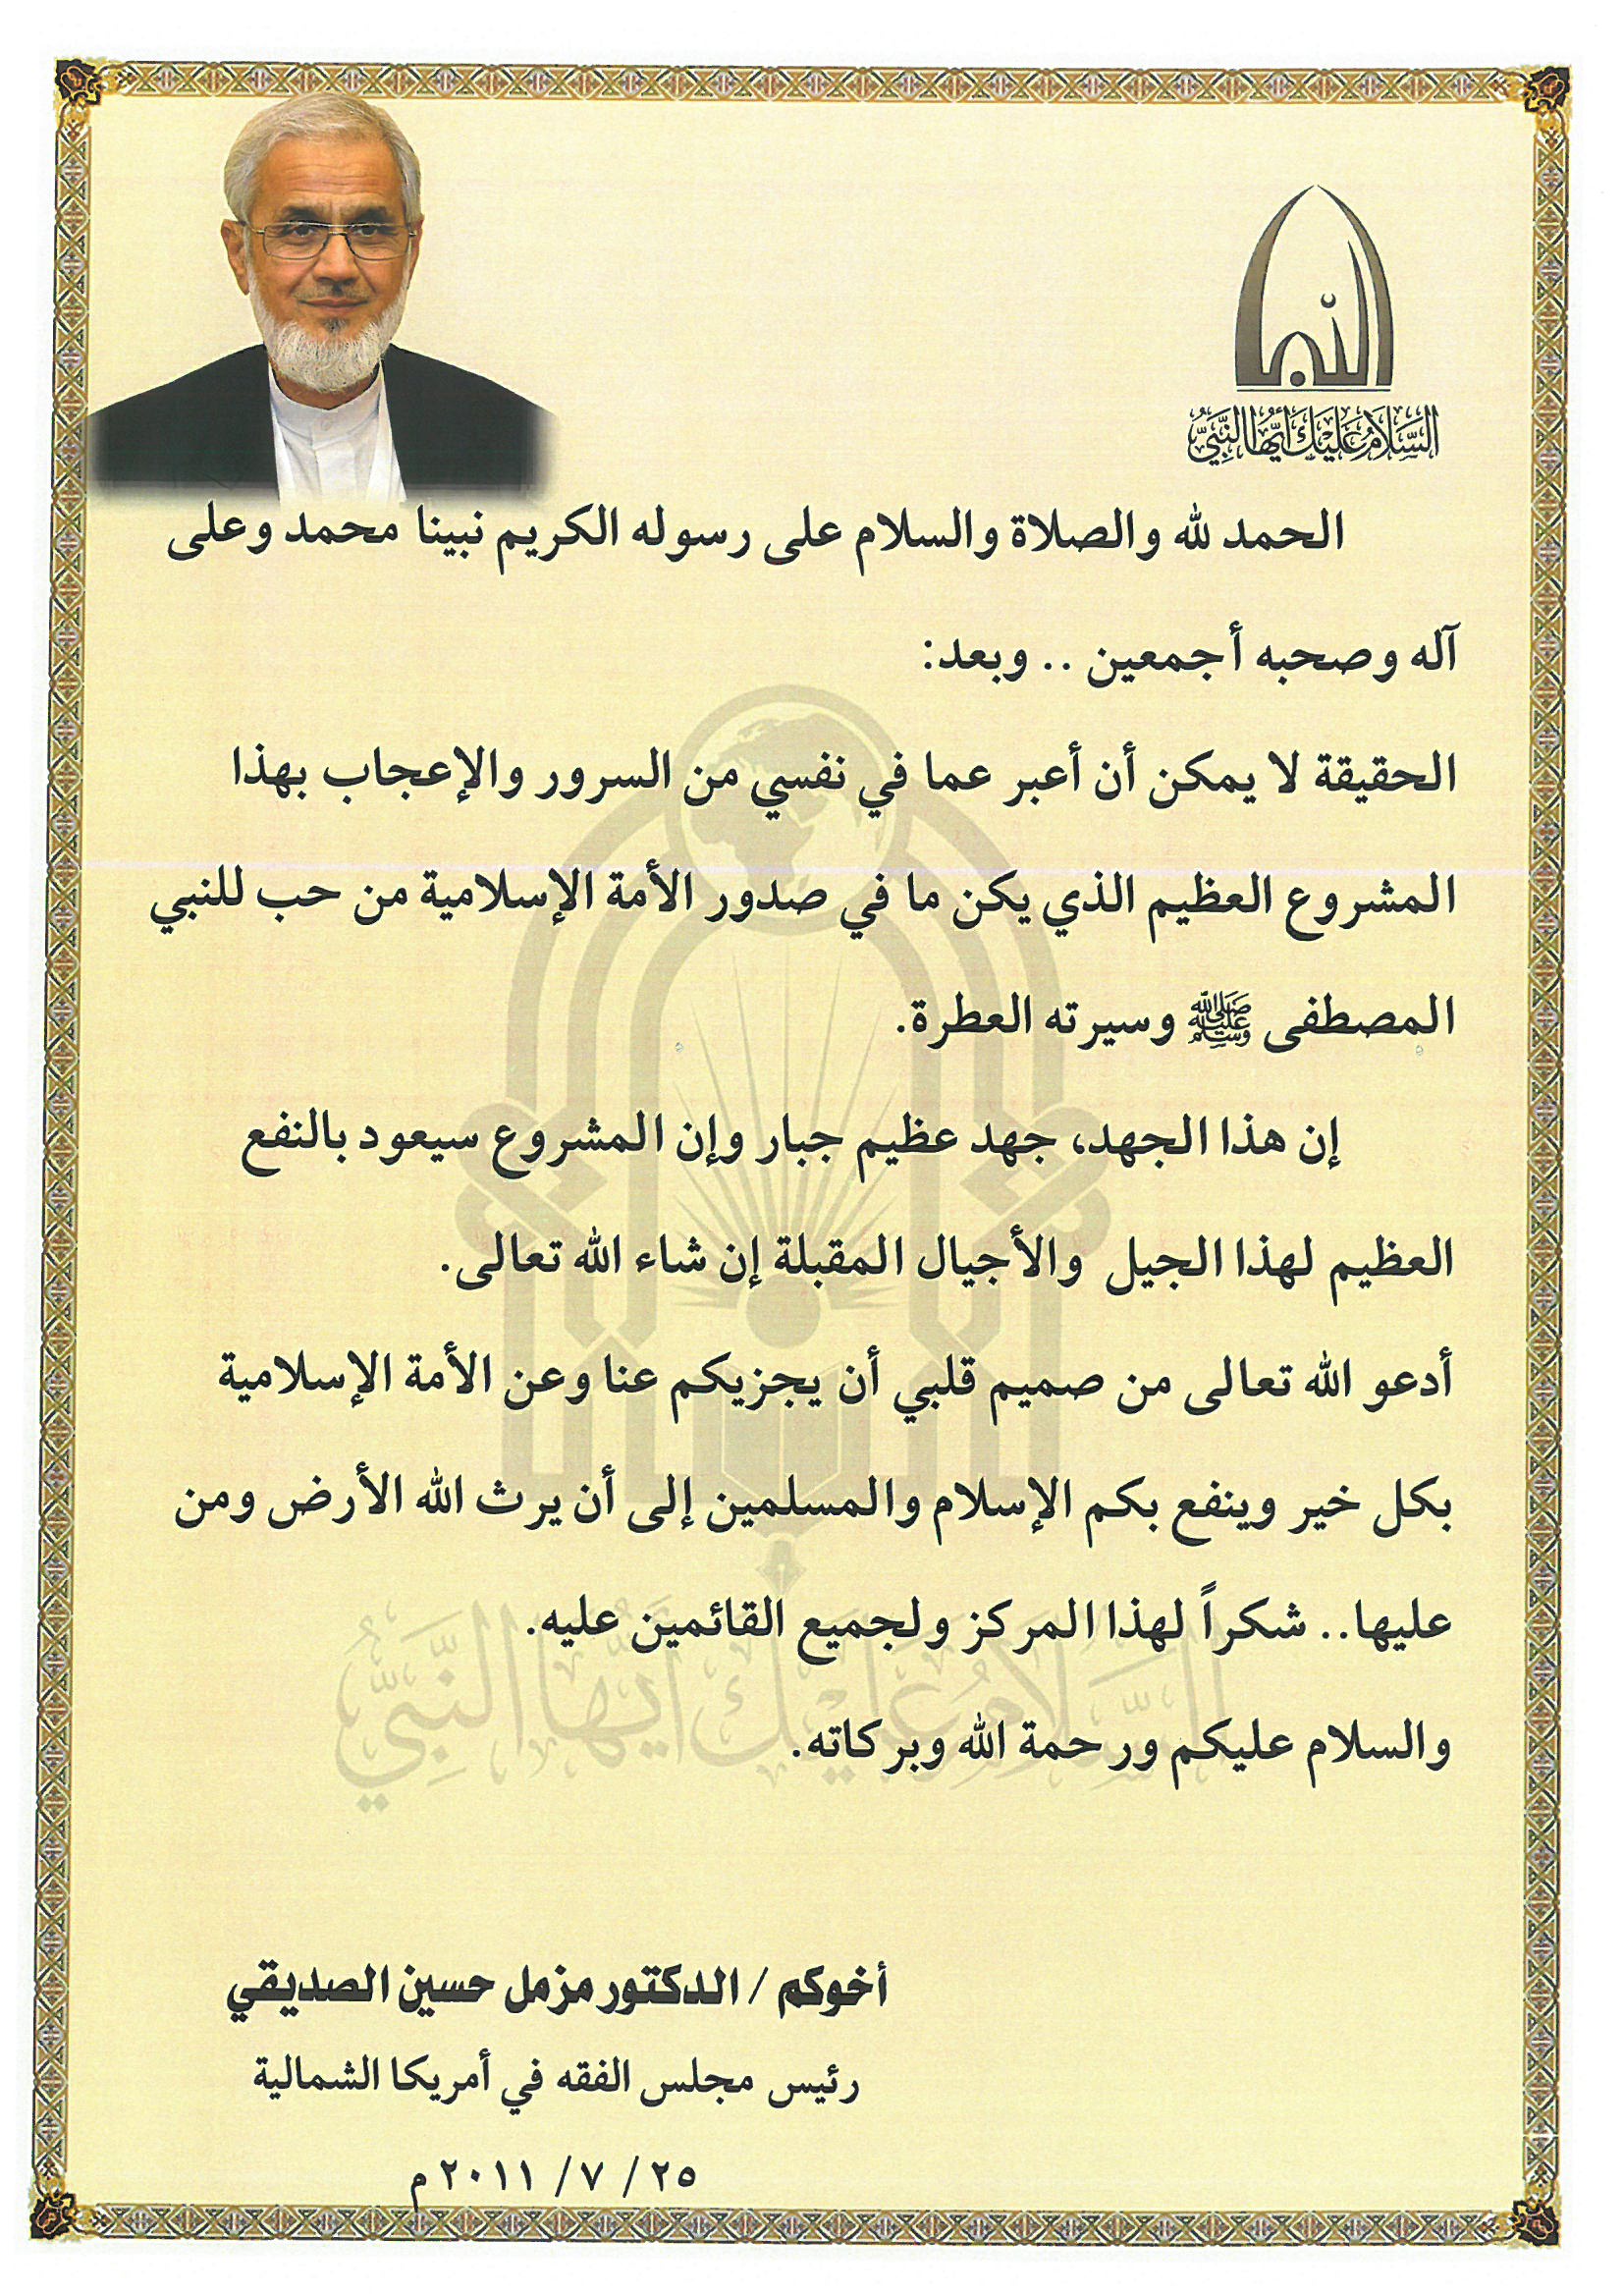 السلام عليك أيها النبي
الحمد لله والصلاة والسلام على رسوله الكريم نبينا محمد وعلى
آله وصحبه أجمعين .. وبعد:
الحقيقة لا يمكن أن أعبر عما في نفسي من السرور والإعجاب بهذا
المشروع العظيم الذي يكن ما في صدور الأمة الإسلامية من حب للنبي
المصطفى ﷺ وسيرته العطرة.
إن هذا الجهد، جهد عظيم جبار وإن المشروع سيعود بالنفع
العظيم لهذا الجيل والأجيال المقبلة إن شاء الله تعالى.
أدعو الله تعالى من صميم قلبي أن يجزيكم عنا وعن الأمة الإسلامية
بكل خير وينفع بكم الإسلام والمسلمين إلى أن يرث الله الأرض ومن
عليها.. شكراً لهذا المركز ولجميع القائمين عليه.
السلام عليك أيها النبي
والسلام عليكم ورحمة الله وبركاته.
أخوكم / الدكتور مزمل حسين الصديقي
رئيس مجلس الفقه في أمريكا الشمالية
٢٥ / ٧ / ٢٠١١ م